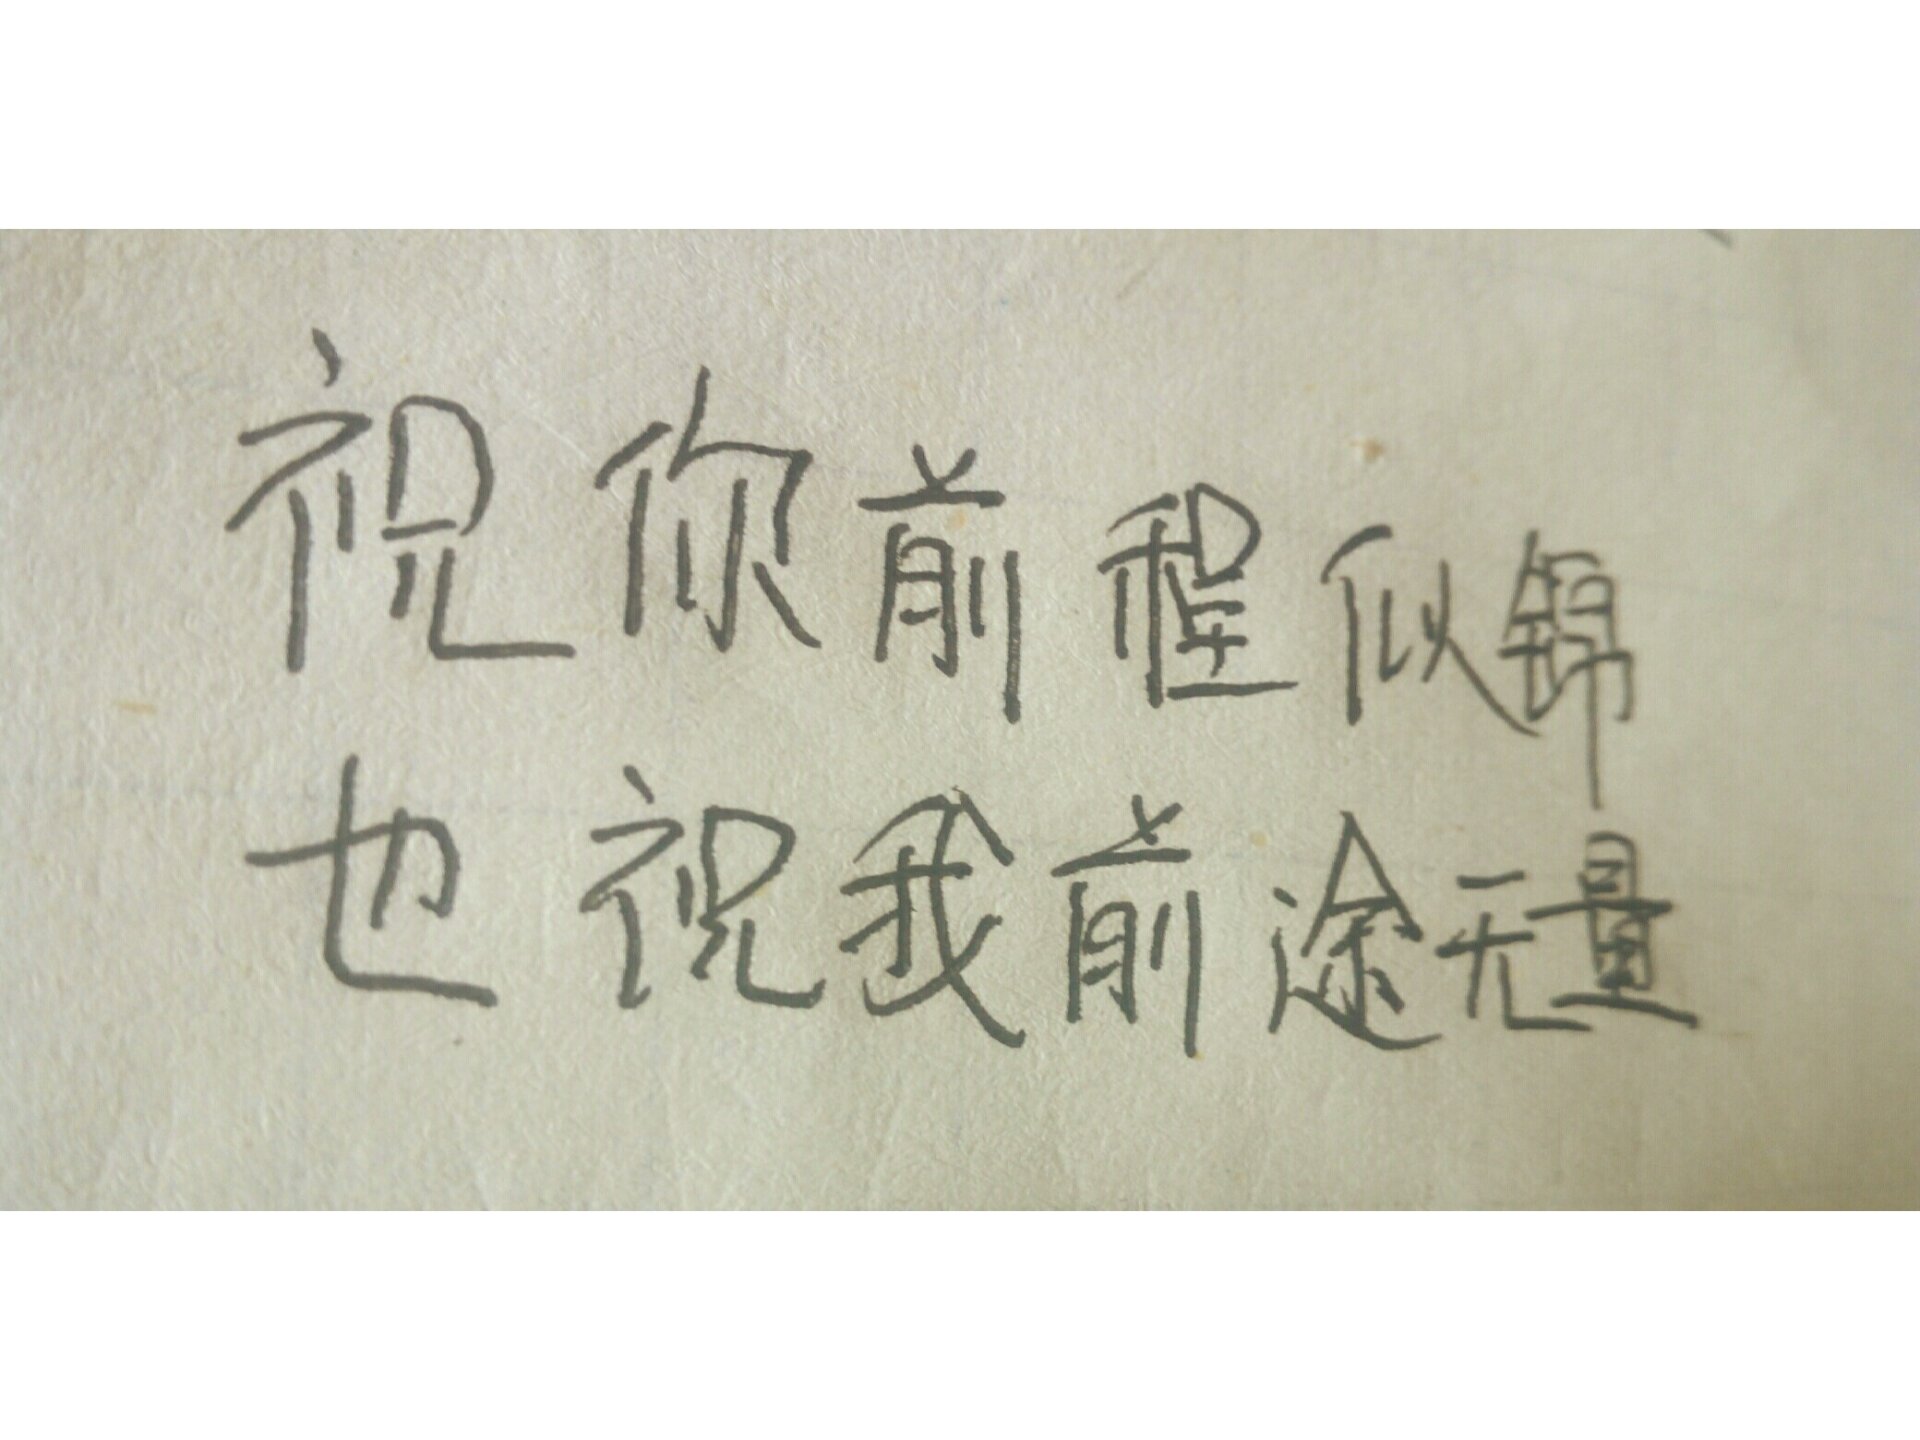 祝你前程似锦
也祝我前途无量